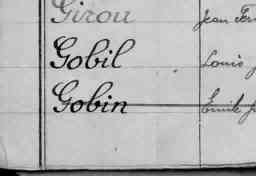 Girou Jean Fer
Gobil Louis
Gobin Emile